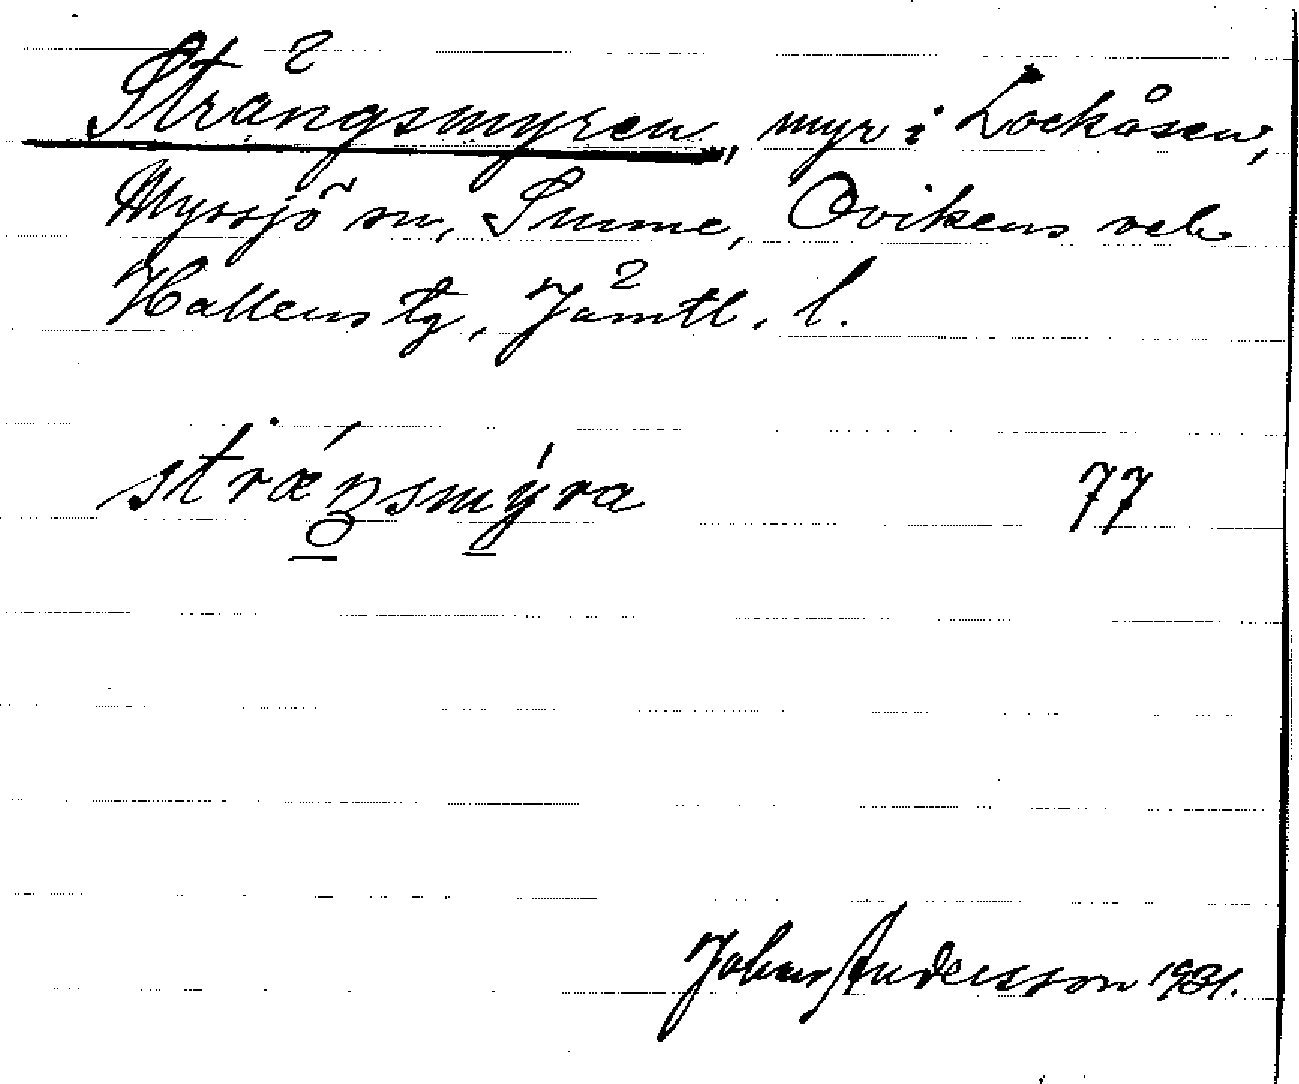 Strängsmyren, myr i Lockåsen,
Myssjö sn, Sunne, Ovikens och
Hallens tg, Jämtl. l.
strǽŋsmýra 77
Johan Andersson 1931.